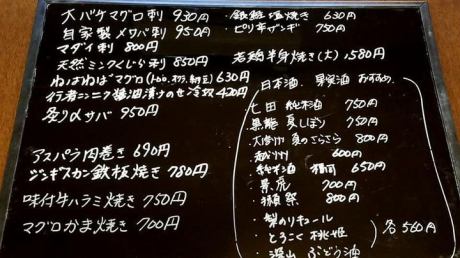 大バケマグロ刺 930円
自家製〆サバ刺 950円
マダイ刺 800円
天然ミンクくじら刺 850円
ねばねばマグロ(とろろ、オクラ、納豆)630円
行者ニンニク醤油漬けのせ冷奴 420円
炙り〆サバ 950円
アスパラ肉巻き 690円
ジンギスカン鉄板焼き 780円
味付牛ハラミ焼き 750円
マグロかま焼き 700円
銀鮭塩焼き 630円
ピリ辛ザンギ 750円
若鶏半身焼き(大)1,580円
日本酒、果実酒 おすすめ
・七田 純米酒 750円
・黒龍 夏しぼり 750円
・大山 夏のさらさら 800円
600円
・純米酒 650円
・景虎 700円
・獺祭 800円
・梨のリキュール
・とろこく 桃姫
・深山 ぶどう酒
各560円